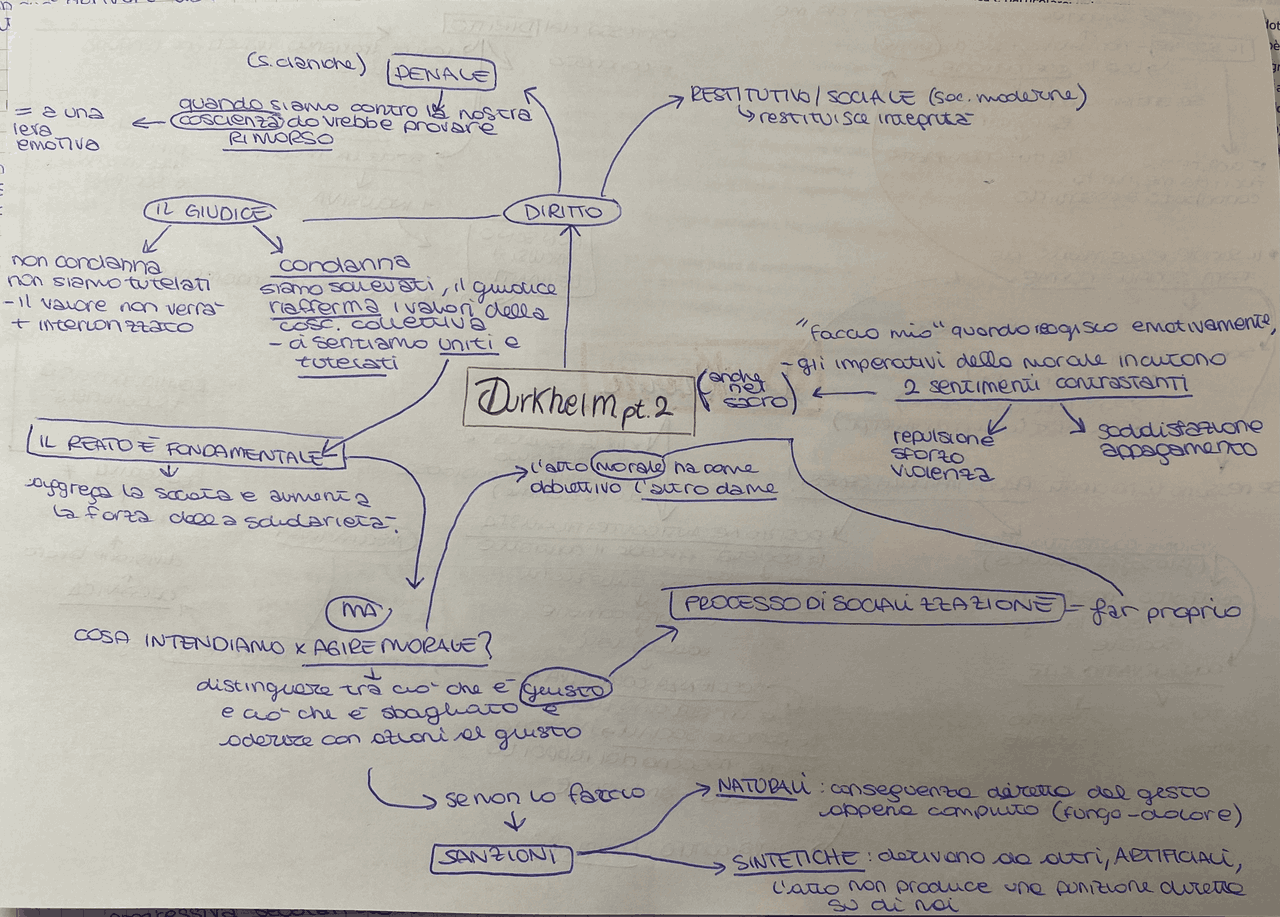 (s. claniche) PENALE
quando siamo contro la nostra
coscienza dovrebbe provare
RIMORSO
= a una
leva
emotiva
RESTITUTIVO/SOCIALE (soc. moderne)
↳ restituisce integrità
IL GIUDICE
DIRITTO
non condanna
non siamo tutelati
- il valore non verrà
+ interiorizzato
condanna
siamo sollevati, il giudice
riafferma i valori della
cosc. collettiva
- ci sentiamo uniti e
tutelati
"faccio mio" quando reagisco emotivamente,
- gli imperativi della morale incutono
2 sentimenti contrastanti
(anche
nel
sacro)
repulsione
sforzo
violenza
soddisfazione
appagamento
Durkheim pt. 2
IL REATO È FONDAMENTALE
aggrega la società e aumenta
la forza della solidarietà.
l'atto morale ha come
obbiettivo l'altro da me
MA
COSA INTENDIAMO x AGIRE MORALE?
distinguere tra ciò che è giusto
e ciò che è sbagliato e
aderire con azioni al giusto
PROCESSO DI SOCIALIZZAZIONE = far proprio
se non lo faccio
SANZIONI
NATURALI: conseguenza diretta del gesto
appena compiuto (fungo-dolore)
SINTETICHE: derivano da altri, ARTIFICIALI,
l'atto non produce una punizione diretta
su di noi